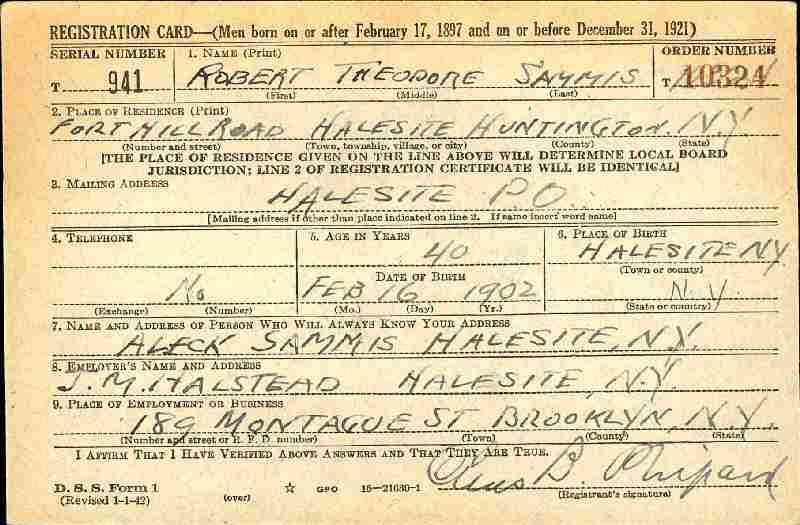 REGISTRATION CARD—(Men born on or after February 17, 1897 and on or before December 31, 1921)
SERIAL NUMBER 1. NAME (Print) ORDER NUMBER
T 941 ROBERT THEODORE SAMMIS T 10324
(First) (Middle) (Last)
2. PLACE OF RESIDENCE (Print)
FORT HILL ROAD HALESITE HUNTINGTON. N.Y.
(Number and street) (Town, township, village, or city) (County) (State)
[THE PLACE OF RESIDENCE GIVEN ON THE LINE ABOVE WILL DETERMINE LOCAL BOARD
JURISDICTION; LINE 2 OF REGISTRATION CERTIFICATE WILL BE IDENTICAL]
3. MAILING ADDRESS
HALESITE P.O.
[Mailing address if other than place indicated on line 2. If same insert word same]
4. TELEPHONE 5. AGE IN YEARS 6. PLACE OF BIRTH
40 HALESITE NY
DATE OF BIRTH (Town or county)
No FEB 16 1902 N.Y.
(Exchange) (Number) (Mo.) (Day) (Yr.) (State or country)
7. NAME AND ADDRESS OF PERSON WHO WILL ALWAYS KNOW YOUR ADDRESS
ALECK SAMMIS HALESITE, N.Y.
8. EMPLOYER'S NAME AND ADDRESS
J. M. HALSTEAD HALESITE, N.Y.
9. PLACE OF EMPLOYMENT OR BUSINESS
189 MONTAGUE ST BROOKLYN, N.Y.
(Number and street or R. F. D. number) (Town) (County) (State)
I AFFIRM THAT I HAVE VERIFIED ABOVE ANSWERS AND THAT THEY ARE TRUE.
D. S. S. Form 1
(Revised 1-1-42) (over) GPO 16—21630-1
B.
(Registrant's signature)